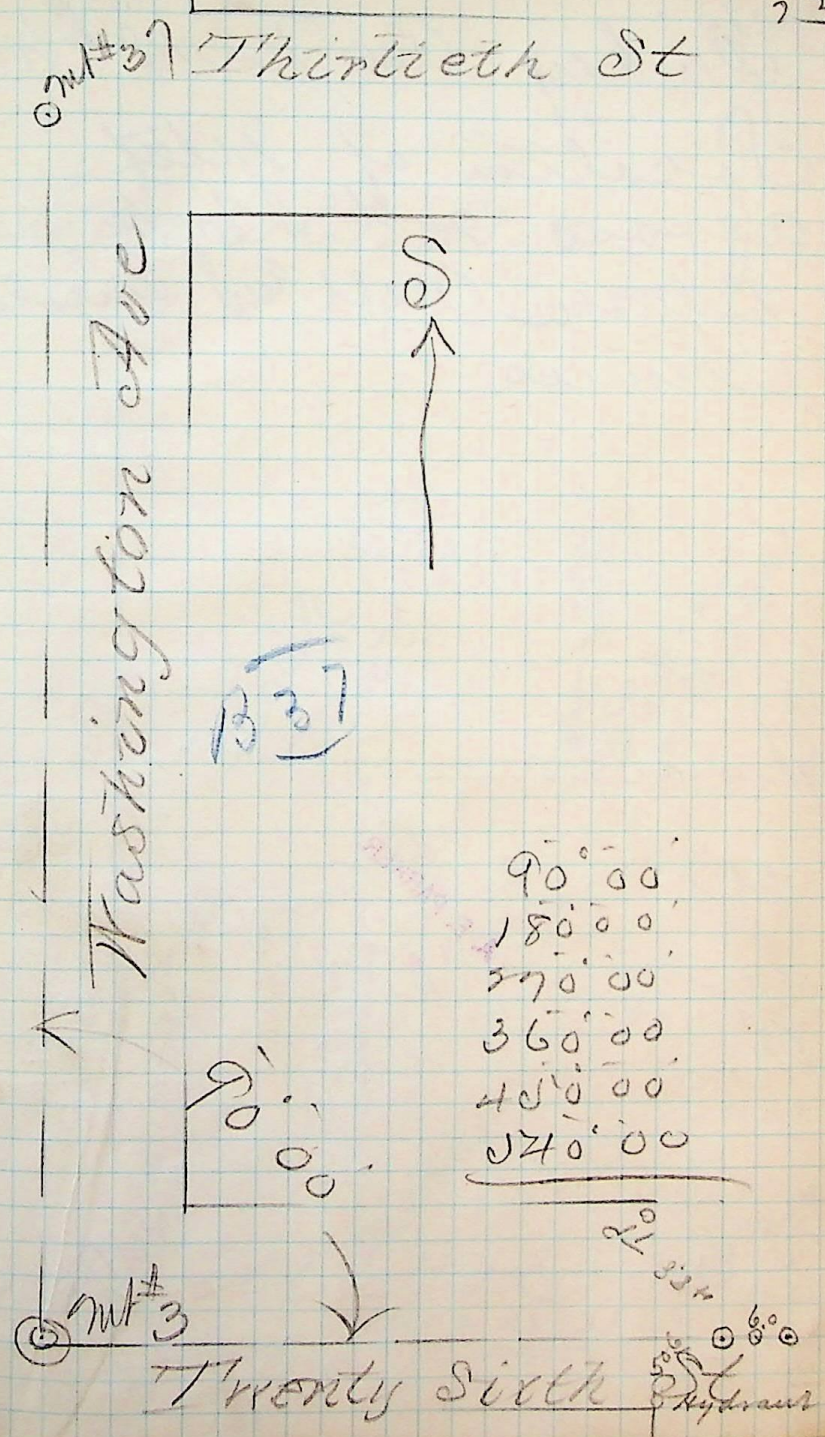 Mt #37
Thirtieth St
S
Washington Ave
B 37
90° 00'
180° 00'
270° 00'
360° 00'
450° 00'
540° 00'
90° 00'
Mt #3
6.0
Twenty Sixth St
Hydrant